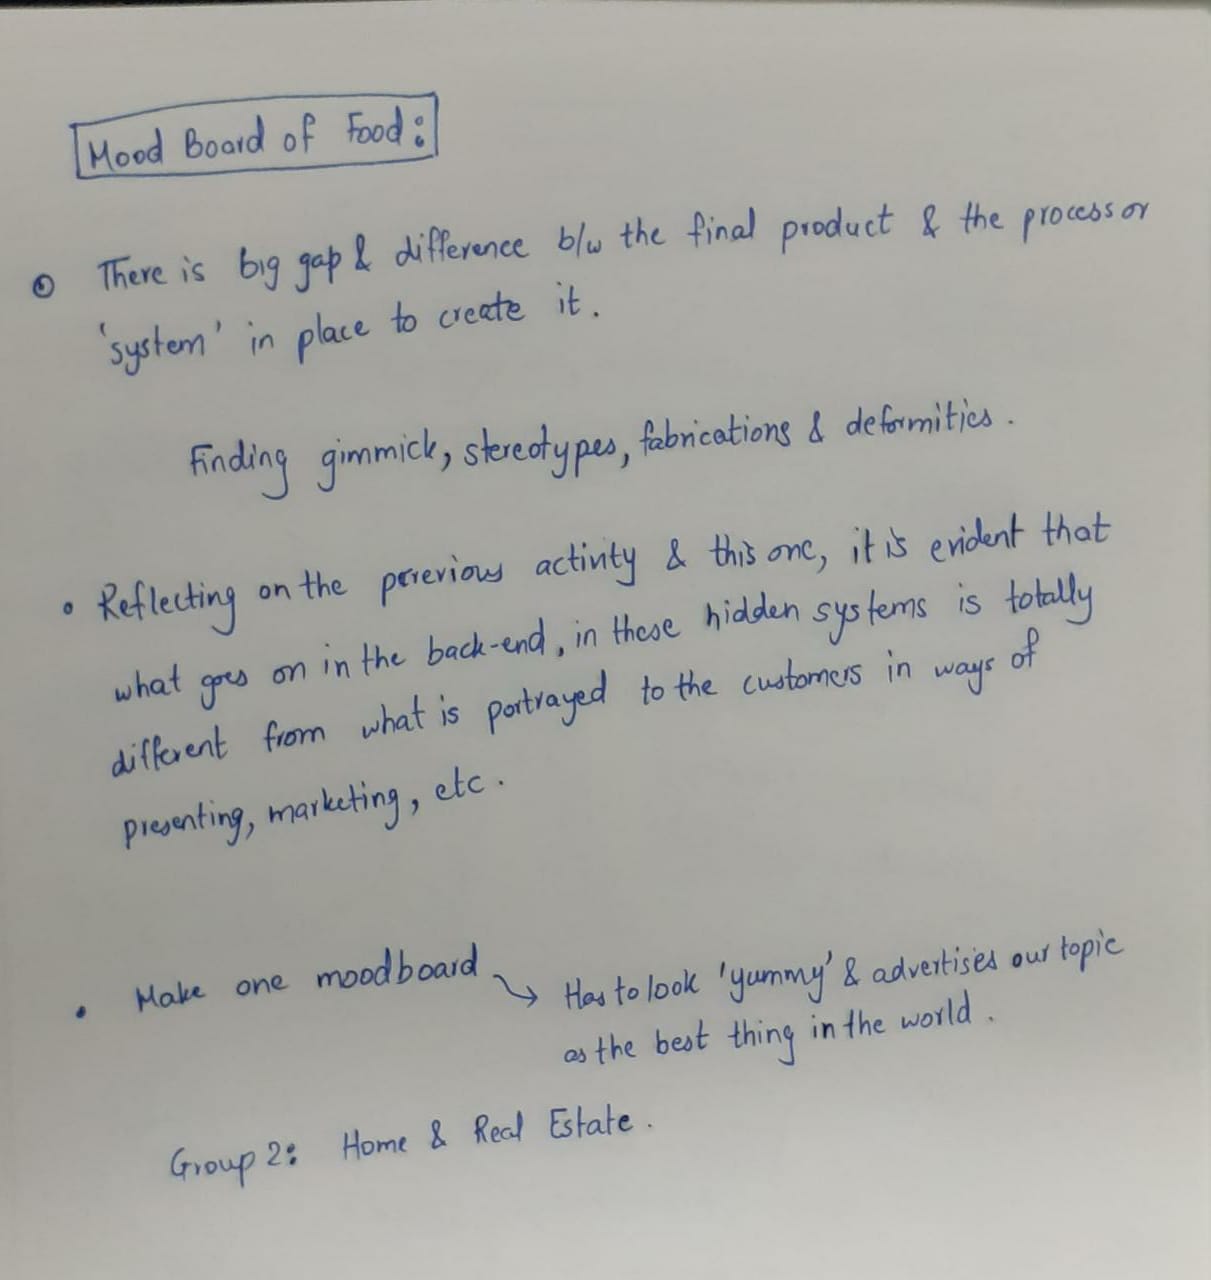 Mood Board of Food:
There is big gap & difference b/w the final product & the process or
'system' in place to create it.
Finding gimmick, stereotypes, fabrications & deformities.
• Reflecting on the perevious activity & this one, it is evident that
what goes on in the back-end, in these hidden systems is totally
different from what is portrayed to the customers in ways of
presenting, marketing, etc.
• Make one moodboard → Has to look 'yummy' & advertises our topic
as the best thing in the world.
Group 2: Home & Real Estate.